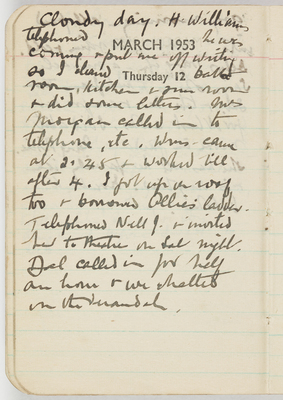 Cloudy day. H Williams
telephoned he was
MARCH 1953
coming & put me off writing
so I cleaned bath
Thursday 12
room, kitchen & sun room
& did some letters. Mrs
Morgan called in to
telephone, etc. Wms. came
at 2.45 & worked till
after 4. I got up on roof
too & borrowed Ollie's ladder.
Telephoned Nell J. & invited
her to theatre on Sat night.
Dal called in for half
an hour & we chatted
on the verandah.